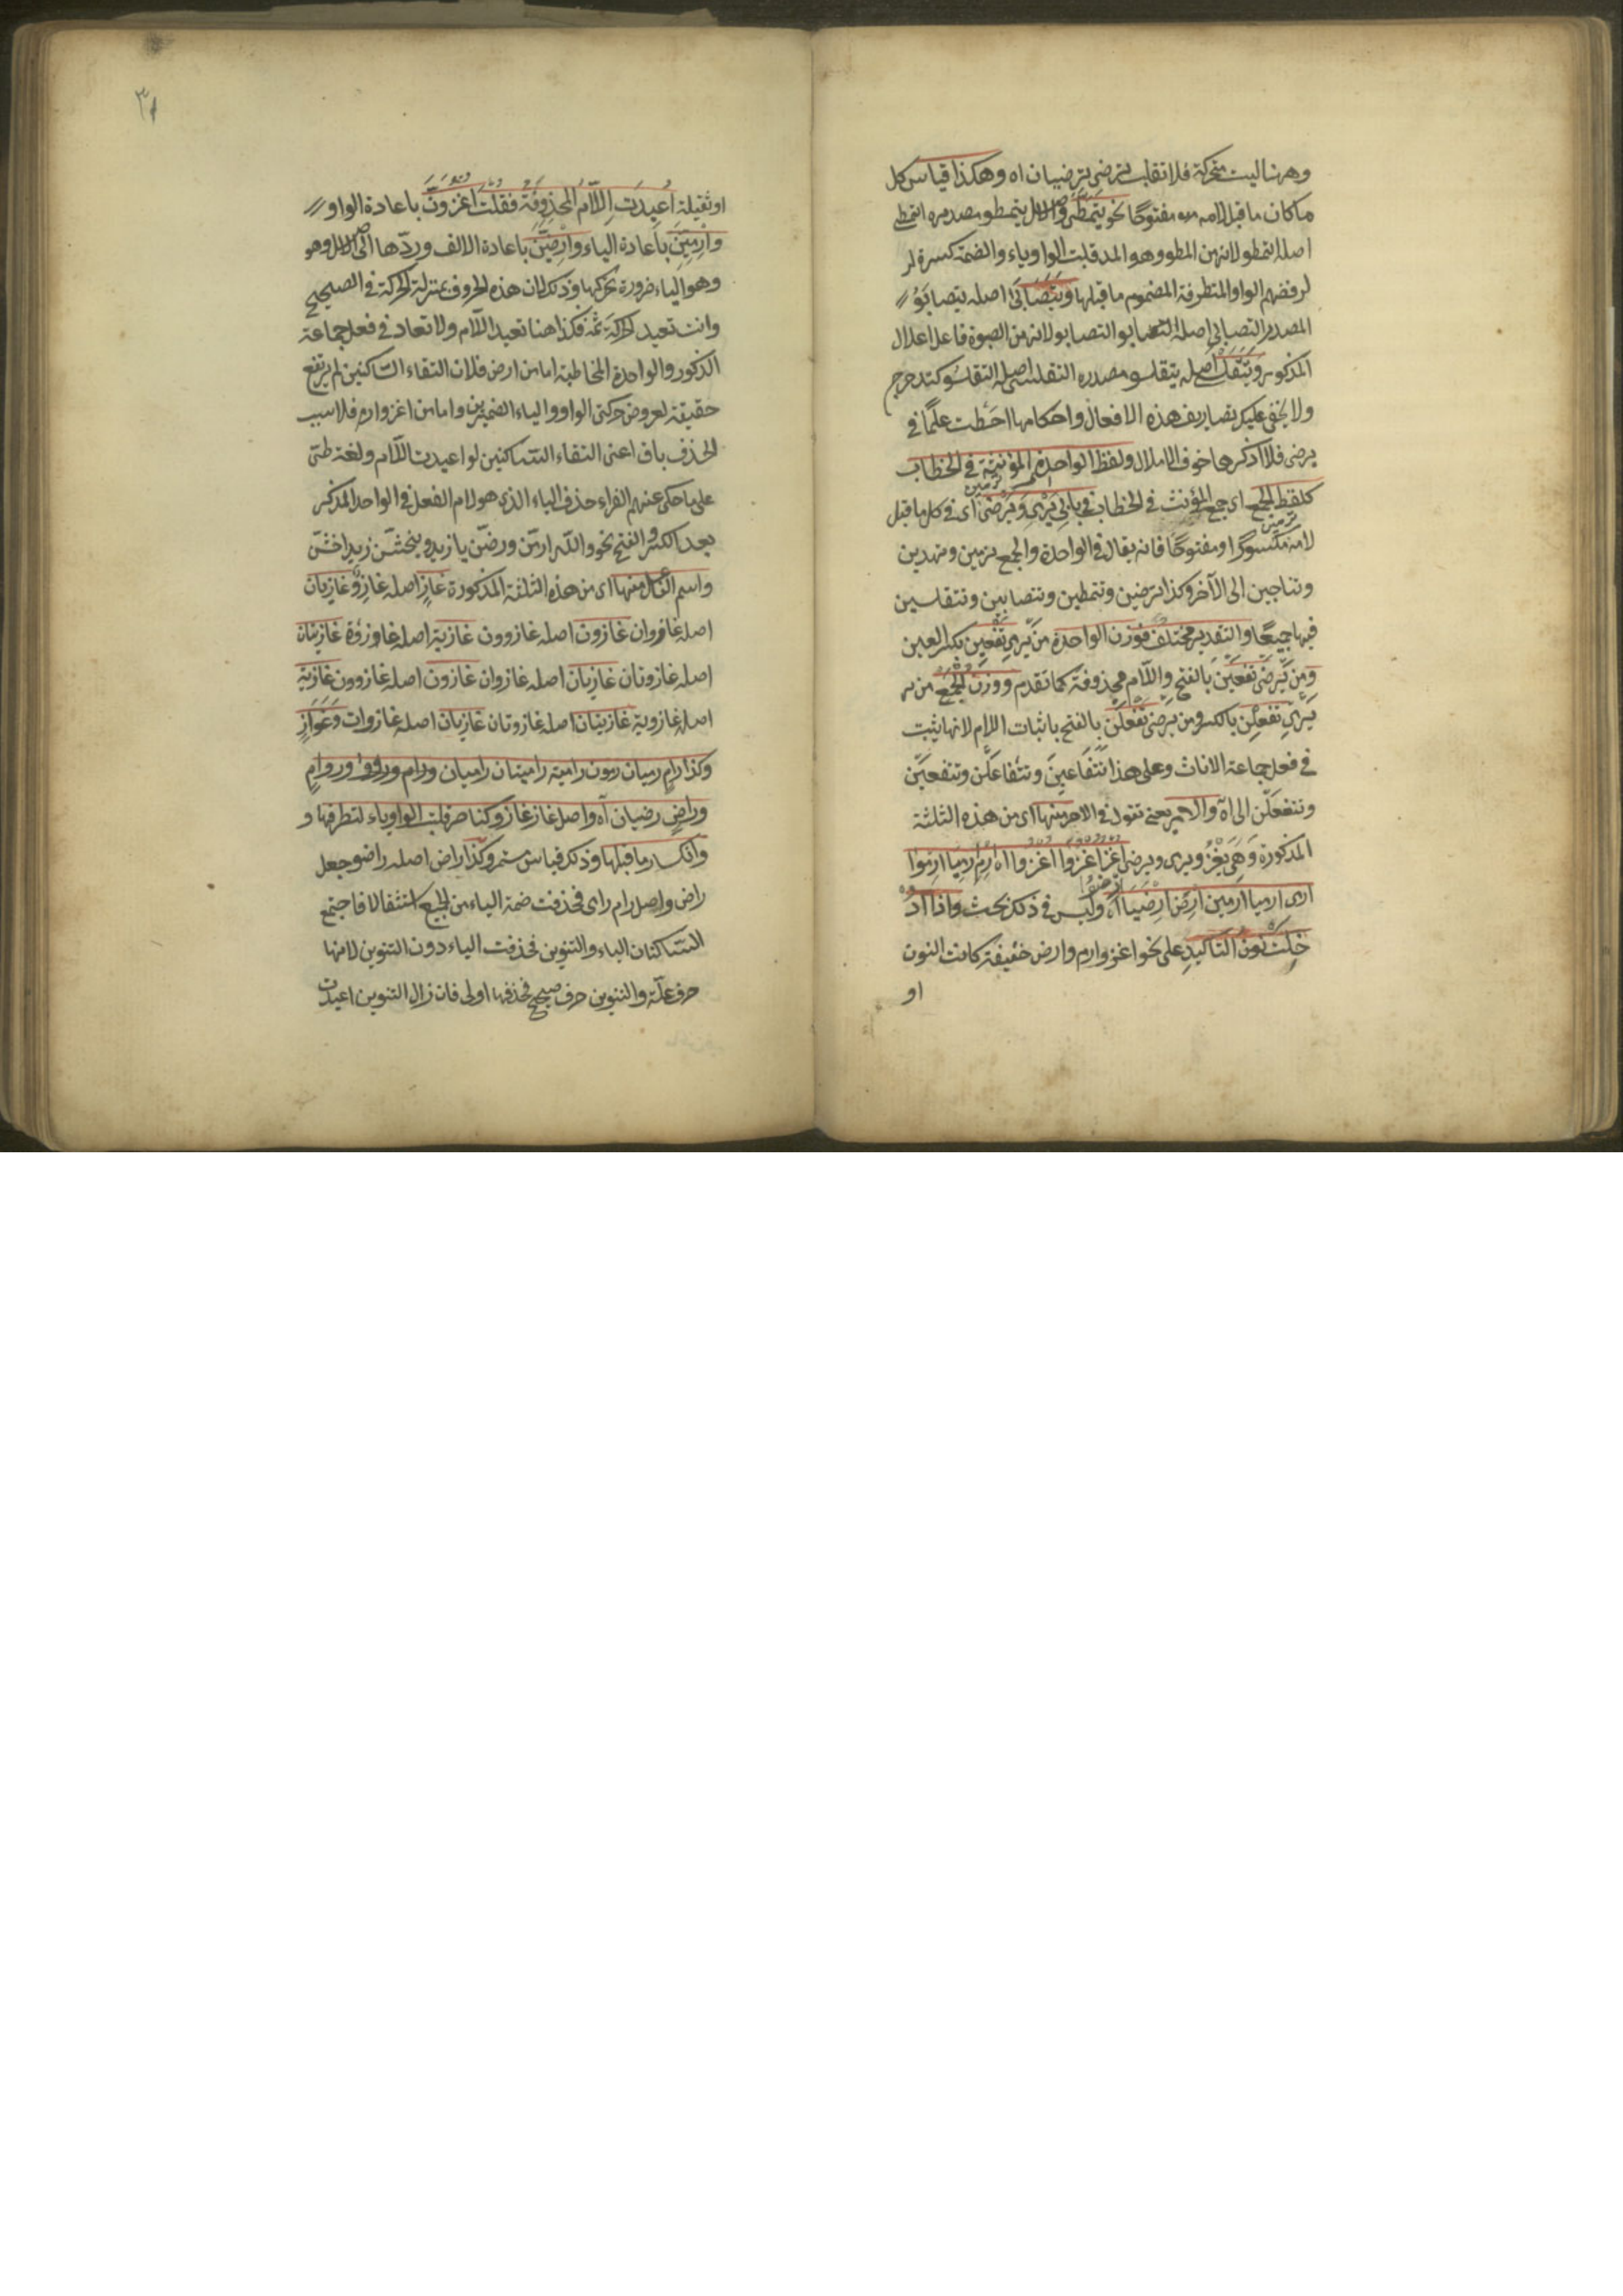 وههنا ليست متحركة فلا تقلب ترضى ترضيان اه وهكذا قياس كل
ما كان ما قبل لامه مفتوحا نحو يتمطى والاصل يتمطو مصدره التمطي
اصله التمطو لانه من المطو وهو المد قلبت الواو ياء والضمة كسرة لر
لرفضهم الواو المتطرفة المضموم ما قبلها ويتصابى اصله يتصابو
المصدر التصابي اصله التصابو لانه من الصبوة فاعل اعلال
المذكور ويتقلسى اصله يتقلسو مصدره التقلسي اصله التقلسو كتدحرج
ولا يخفى عليك تصاريف هذه الافعال واحكامها احطت علما في
يرضى فلا اذكرها خوف الاملال ولفظ الواحدة المؤنثة في الخطاب
كلفظ الجمع اي جمع المؤنث في الخطاب في بابي يرمي ويرضى اي في كل ما قبل
لامه مكسورا او مفتوحا فانه يقال في الواحدة والجمع ترمين وتهدين
وتناجين الى الآخر وكذا ترضين وتتمطين وتتصابين وتتقلسين
فيها جميعا والتقدير مختلف فوزن الواحدة من يرمي تفعين بكسر العين
ومن يرضى تفعين بالفتح واللام محذوفة كما تقدم ووزن الجمع من ير
يرمي تفعلن بالكسر ومن يرضى تفعلن بالفتح باثبات اللام لانها يثبت
في فعل جماعة الاناث وعلى هذا تتفاعين وتتفاعلن وتتفعين
وتتفعلن الى اه والامر يعني تقول في الامر منها اي من هذه الثلثة
المذكورة وهي يغزو ويرمي ويرضى اغز اغزوا اغزوا اه ارم ارميا ارموا
ارمي ارميا ارمين ارض ارضيا ارضوا اه وليس في ذلك بحث واذا اد
خلت نون التاكيد على نحو اغز وارم وارض خفيفة كانت النون
او
٣١
او ثقيلة اعيدت اللام المحذوفة فقلت اغزون باعادة الواو
وارمين باعادة الياء وارضين باعادة الالف وردها الى الاصل وهو
وهو الياء ضرورة تحركها وذلك لان هذه الحروف بمنزلة الحركة في الصحيح
وانت تعيد الحركة ثمه فكذا هنا تعيد اللام ولا تعاد في فعل جماعة
الذكور والواحدة المخاطبة اما من ارض فلان التقاء الساكنين لم يرتفع
حقيقة لعروض حركتي الواو والياء الضميرين واما من اغز وارم فلا سبب
الحذف باق اعني التقاء الساكنين لو اعيدت اللام ولغة طئ
على ما حكى عنهم الفراء حذف الياء الذي هو لام الفعل في الواحد المذكر
بعد الكسر والفتح نحو والله ارمن ورضن يا زيد وليخشن زيد اخشن
واسم الفاعل منها اي من هذه الثلثة المذكورة غاز اصله غازو غازيان
اصله غازوان غازون اصله غازوون غازية اصله غازوة غازيتان
اصله غازوتان غازيان اصله غازوان غازون اصله غازوون غازية
اصله غازوية غازيتان اصله غازوتان غازيات اصله غازوات وغواز
وكذا رام رميان رمون رامية راميتان راميات ورام ورواو وروام
وراض رضيان آه واصل غاز غازو كناصر قلبت الواو ياء لتطرفها و
وانكسار ما قبلها وذلك قياس مستمر وكذا راض اصله راضو جعل
راض واصل رام رامي فحذفت ضمة الياء من الجميع استثقالا فاجتمع
الساكنان الياء والتنوين فحذفت الياء دون التنوين لانها
حرف علة والتنوين حرف صحيح فحذفها اولى فان زال التنوين اعيدت